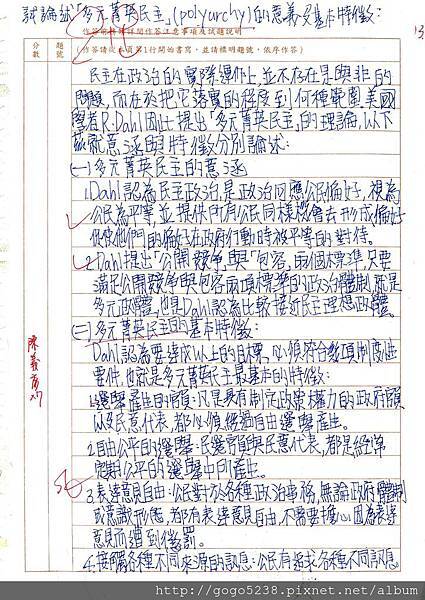 試論述「多元菁英民主」(polyarchy)的意義及基本特徵:
作答前請詳閱作答注意事項及試題說明
分數
題號
(作答請從本頁第1行開始書寫,並請標明題號,依序作答)
13
民主在政治的實際運作上並不存在是與非的
問題,而在於把它落實的程度到何種範圍,美國
學者R.Dahl因此提出「多元菁英民主」的理論,以下
茲就意涵與特徵分別論述:
(一)多元菁英民主的意涵
1.Dahl認為民主政治,是政治回應公民偏好,視為
公民為平等,並提供所有公民同樣機會去形成偏好
促使他們的偏好在政府行動時被平等的對待。
2.Dahl提出「公開競爭」與「包容」兩個標準,只要
滿足公開競爭與包容兩項標準的政治體制,就是
多元政體,也是Dahl認為比較接近民主理想政體。
(二)多元菁英民主的基本特徵:
Dahl認為要達成以上的目標,必須符合數項制度性
要件,也就是多元菁英民主最基本的特徵:
1.選舉產生的官員:凡是具有制定政策權力的政府官員
以及民意代表,都必須經過自由選舉產生。
2.自由公平的選舉:民選官員與民意代表,都是經常
定期公平的選舉中所產生。
3.表達意見自由:公民對於各種政治事務,無論政府體制
或意識形態,都有表達意見自由,不需要擔心因為表達
意見而遭到懲罰。
4.接觸各種不同來源的訊息:公民有尋求各種不同訊息
http://gogo5238.pixnet.net/album